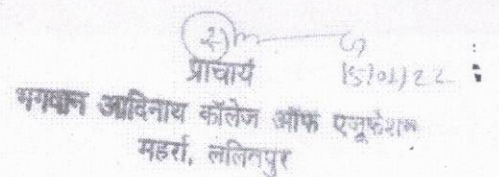 प्राचार्य 15/01/22
भगवान आदिनाथ कॉलेज ऑफ एजूकेशन
महर्रा, ललितपुर